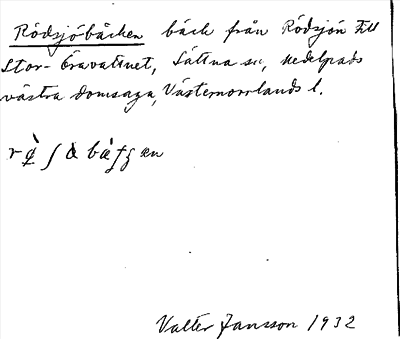 Rödsjöbäcken bäck från Rödsjön till
Stor-Öravattnet, Sättna sn, Medelpads
västra domsaga, Västernorrlands l.
Valter Jansson 1932